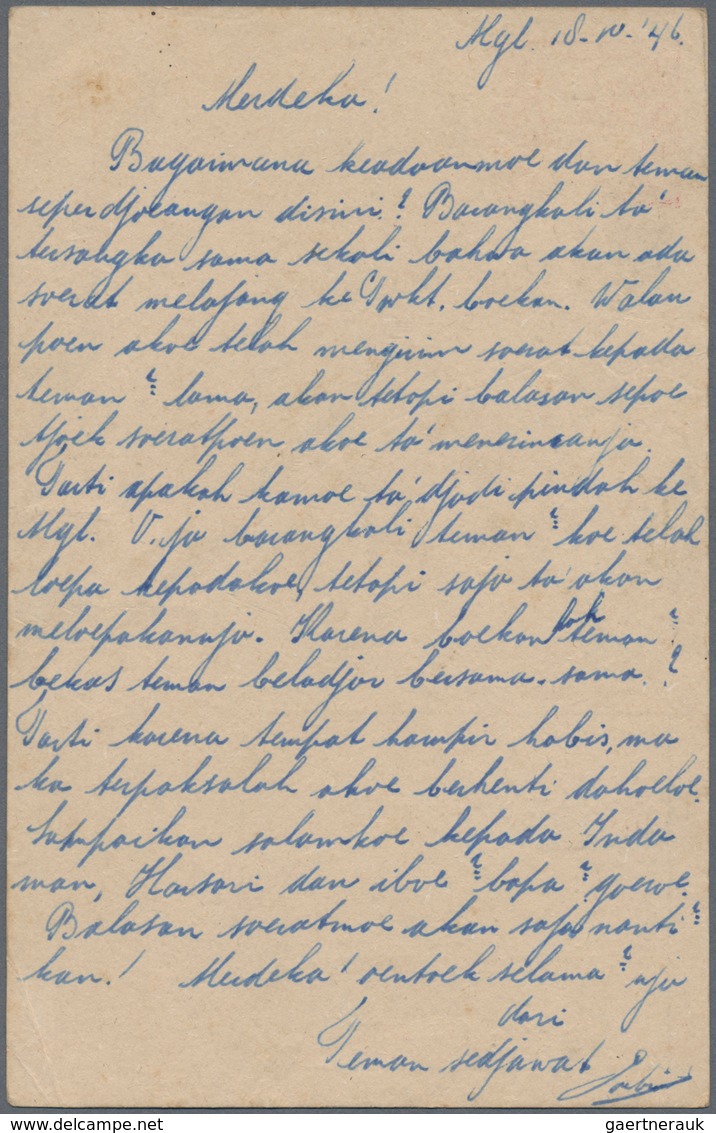 Mgl. 18-10-'46.
Merdeka!
Bagaimana keadaanmoe dan teman
seperdjoeangan disini? Barangkali ta'
tersangka sama sekali bahwa akan ada
soerat melajang ke Pwkt. boekan. Walau
poen akoe telah mengirim soerat kepada
teman² lama, akan tetapi balasan sepoe
tjoek soeratpoen akoe ta' menerimanja.
Tarti apakah kamoe ta' djadi pindah ke
Mgl. O, ja barangkali teman² koe telah
loepa kepadakoe, tetapi saja ta' akan
meloepakannja. Karena boekankah teman²
bekas teman beladjar bersama-sama?
Tarti karena tempat hampir habis, ma
ka terpaksalah akoe berhenti dahoeloe.
Sampaikan salamkoe kepada Inda
man, Harsari dan iboe² bapa² goeroe.
Balasan soeratmoe akan saja nanti²
kan! Merdeka! oentoek selama²nja
dari
Teman sedjawat
gaertnerauk / gaertnerauk.com